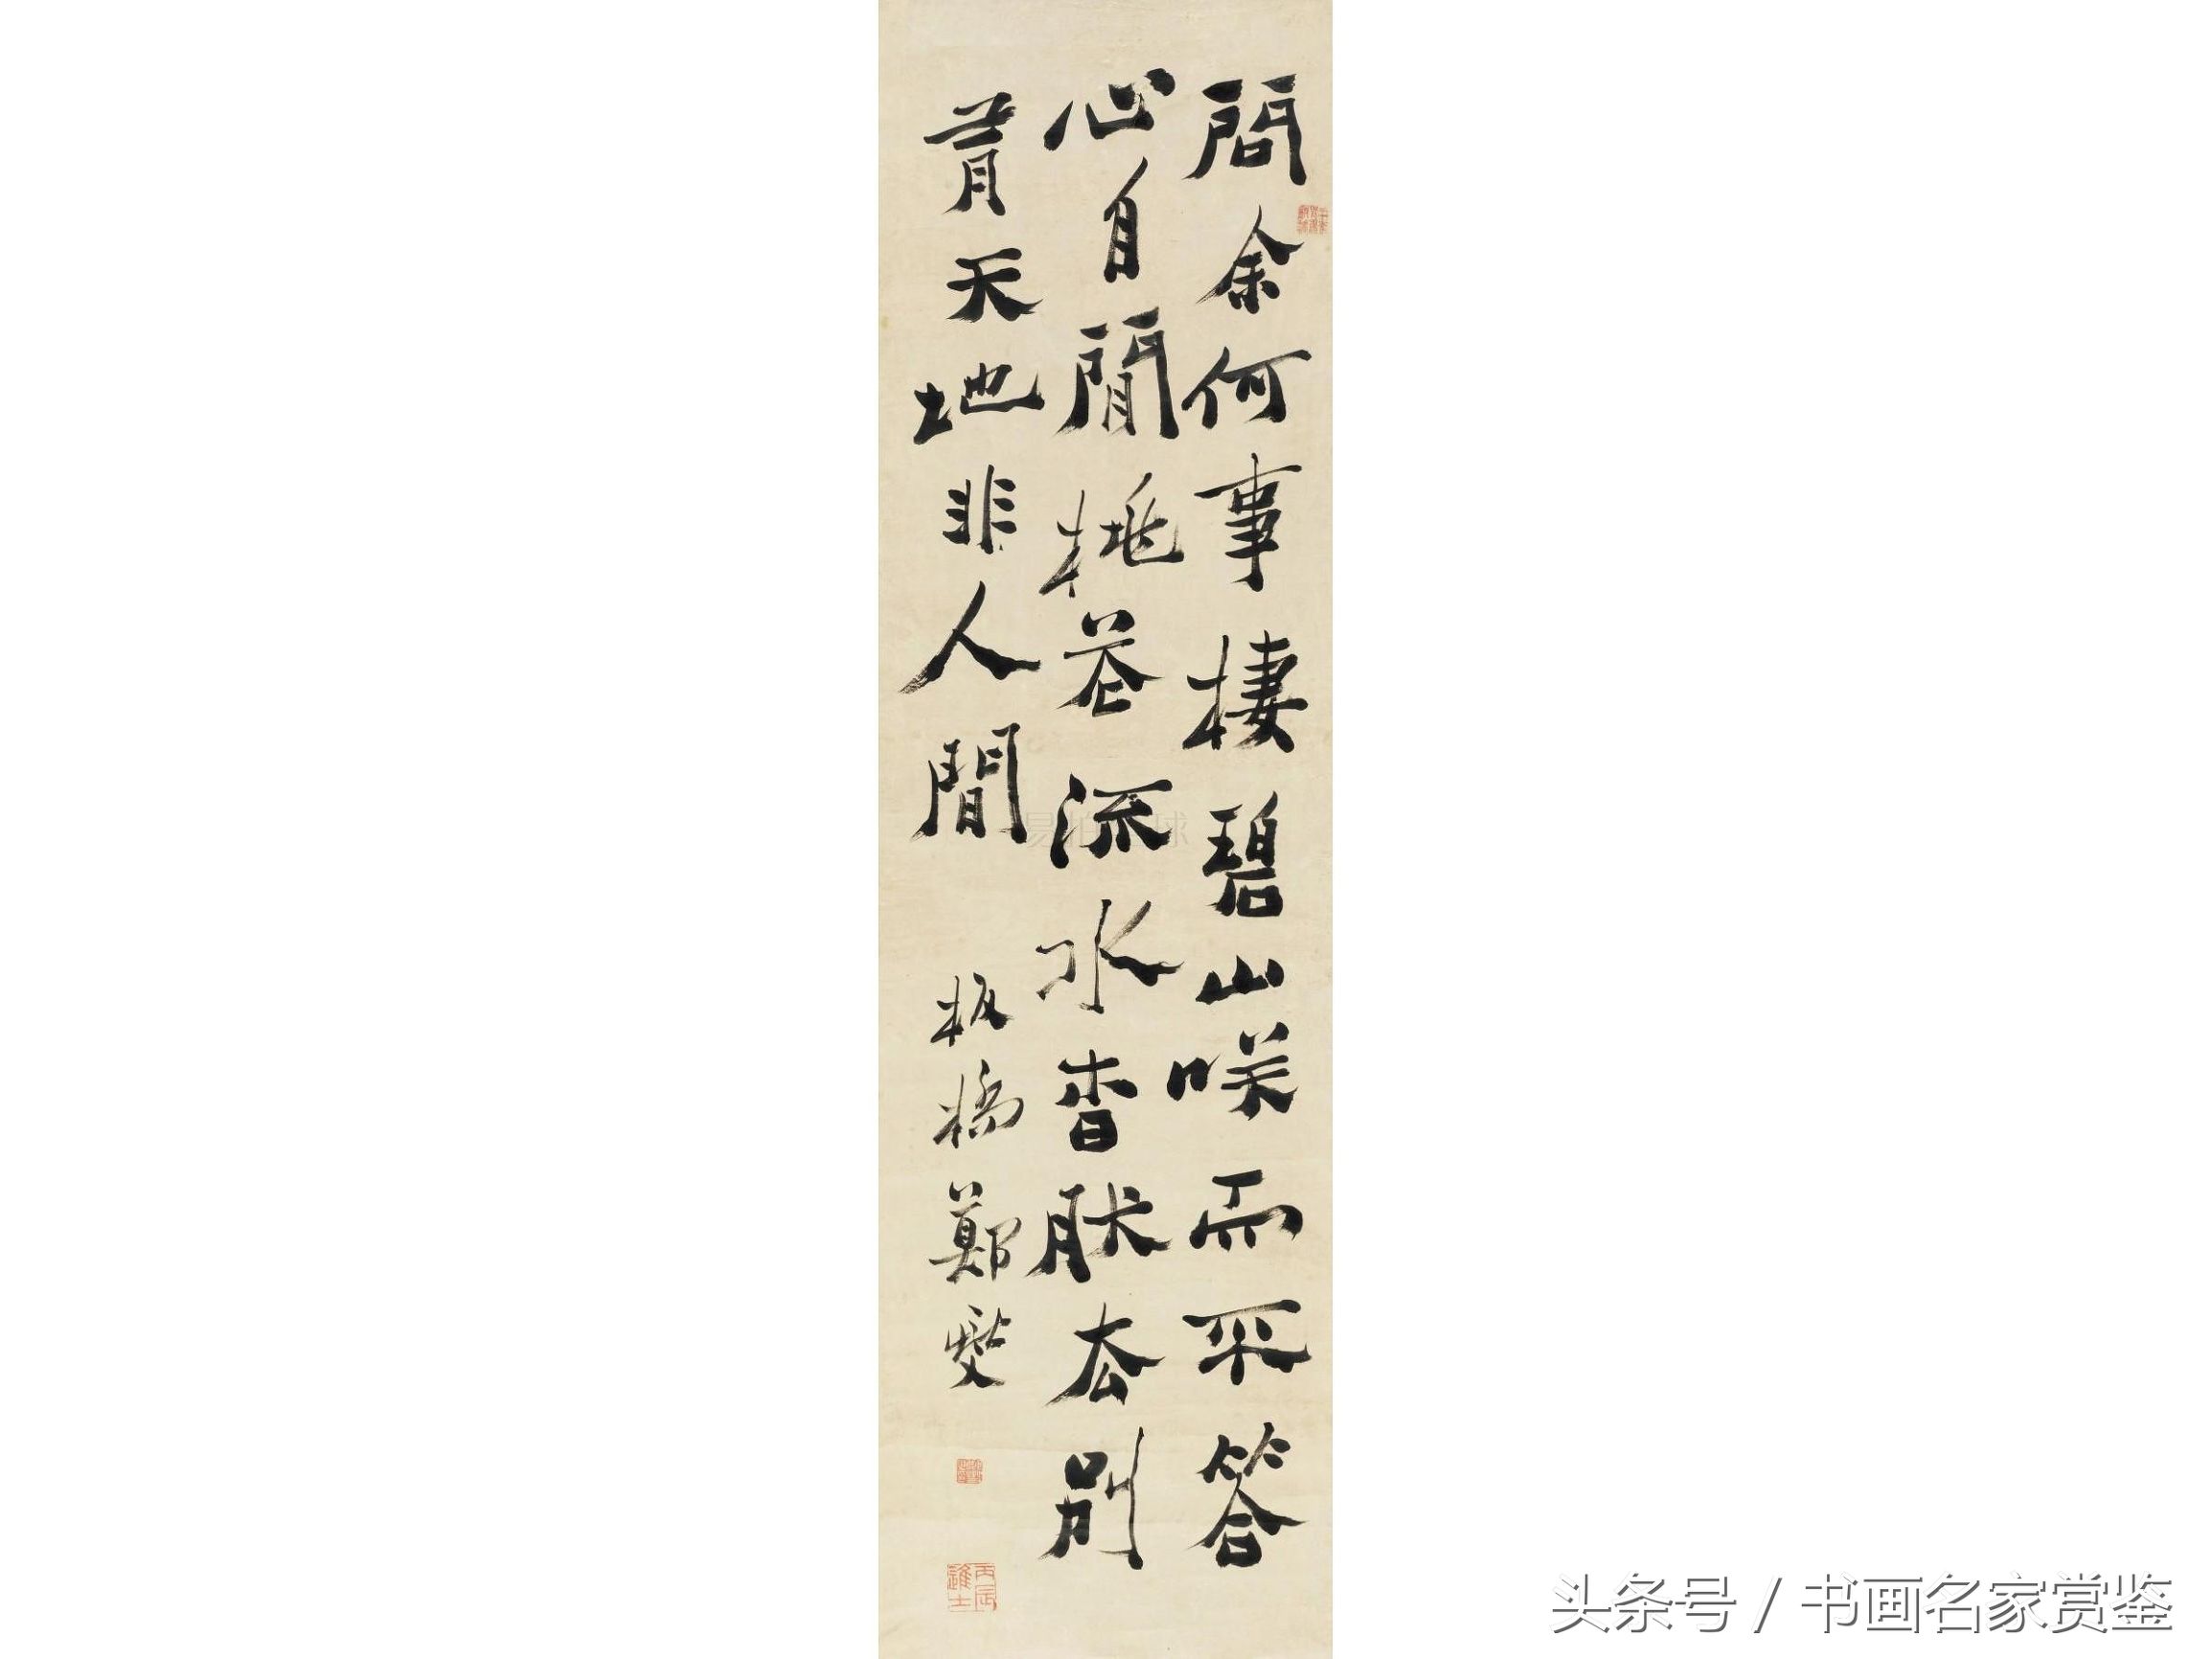 問余何事棲碧山咲而不答
心自閒桃花流水杳肰去别
有天地非人間
板橋鄭燮
丙辰進士
头条号 / 书画名家赏鉴